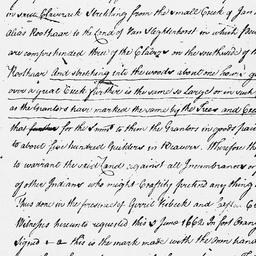 in same Claverack Stretching from the small Creek of Jan
alias Roothaar to the Land of Van Slychtenhorst in which
are comprehended three of the Clavers on the southside of
Roothaar And stretching into the woods about one hour's
over a great Creek further is the same so large or in such
as the Grantors have marked the same by the Trees and
that for the same to them the Grantors in goods paid
to about five hundred guilders in Beavers. Therefore th
to warrant the said Land against all Incumbrances
of other Indians who might Craftily pretend any thing
Thus done in the presence of Gerrit Visbeek and
Witnesses hereunto requested this 5 June 1662 In fort Orang
signed this is the mark made with the own hand